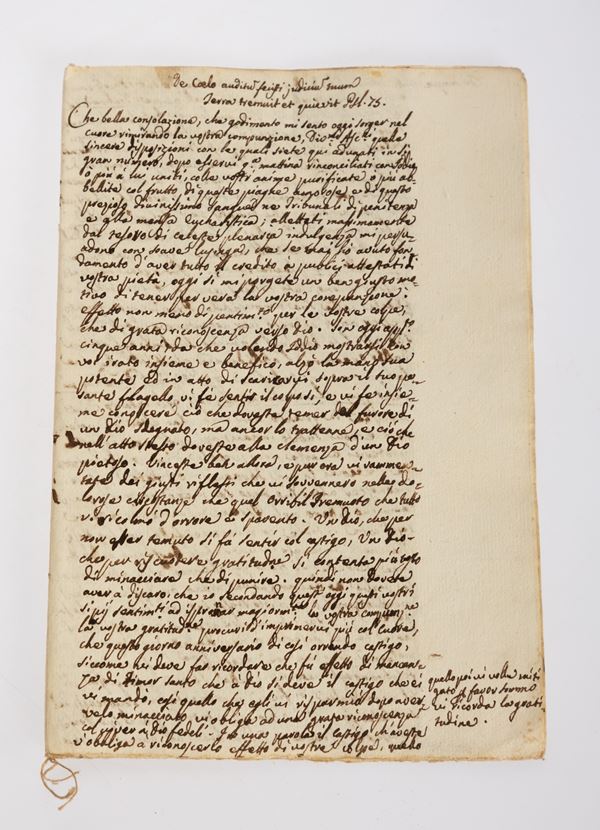 De Cœlo auditu' fecisti judiciu' tuum
Terra tremuit et quievit Psl. 75.
Che bella consolazione, che godimento mi sento oggi sorger nel
cuore rimirando la vostra compunzione,
sincere disposizioni con le quali siete qui adunati in sì
gran numero, dopo esservi mattina riconciliati con Dio,
o più a lui uniti, colle vostr' anime purificate o più ab-
bellite col frutto di queste piaghe amorose e di questo
prezioso divinissimo sangue ne Tribunali di penitenza
e alla mensa Eucharistica; allettati massimamente
dal tesoro di celeste plenaria indulgenza mi persu-
adono con soave lusinga, che se mai hò avuto fon-
damento d'aver tutto il credito à publici attestati di
vostra pietà, oggi si mi porgete un ben giusto mo-
tivo di tener per vera la vostra compunzione:
effetto non meno di pentimento per le vostre colpe,
che di grata riconoscenza verso Dio. Son oggi
cinque anni da che volendo Iddio mostrarsi con
voi irato insieme e benefico, alzò la mano sua
potente ed in atto di scaricarvi sopra il suo pe-
sante flagello, vi fe sentir il colpo sì, e vi fe insie-
me conoscere ciò che doveste temer dal furore di
un Dio sdegnato, ma ancor lo trattenne, e ciò che
nell'atto stesso doveste alla clemenza d'un Dio
pietoso. ben allora, e pur ora vi rammen-
tate dei giusti riflessi che vi sovvennero nelle do-
lorose circostanze che quel orribil Tremuoto che tutto
vi ricolmò d'orrore e spavento. Un Dio, che per
non esser temuto si fà sentir col castigo, Un Dio
che per riscuotere gratitudine si contenta più tosto
di minacciare che di punire. quindi non dovete
aver à discaro, che io secondando quest' oggi questi vostri
sì pij sentimenti ad maggiorm.te la vostra compunz.ne
la vostra gratitud.e procuri d'imprimervi più col cuore,
che questo giorno anniversario di così orrendo castigo,
siccome vi deve far ricordare che fù effetto di mancan-
za di timor santo che à Dio si deve il castigo che ei
vi mandò, così quello che egli vi risparmiò dopo aver-
velo minacciato vi obliga ad una grata riconoscenza
col Dio fedeli. In una parola il castigo
v'obbliga à riconoscerlo effetto di vostre colpe,
quello poi vi volle miti-
gato à favor
vi ricorda la grati-
tudine.